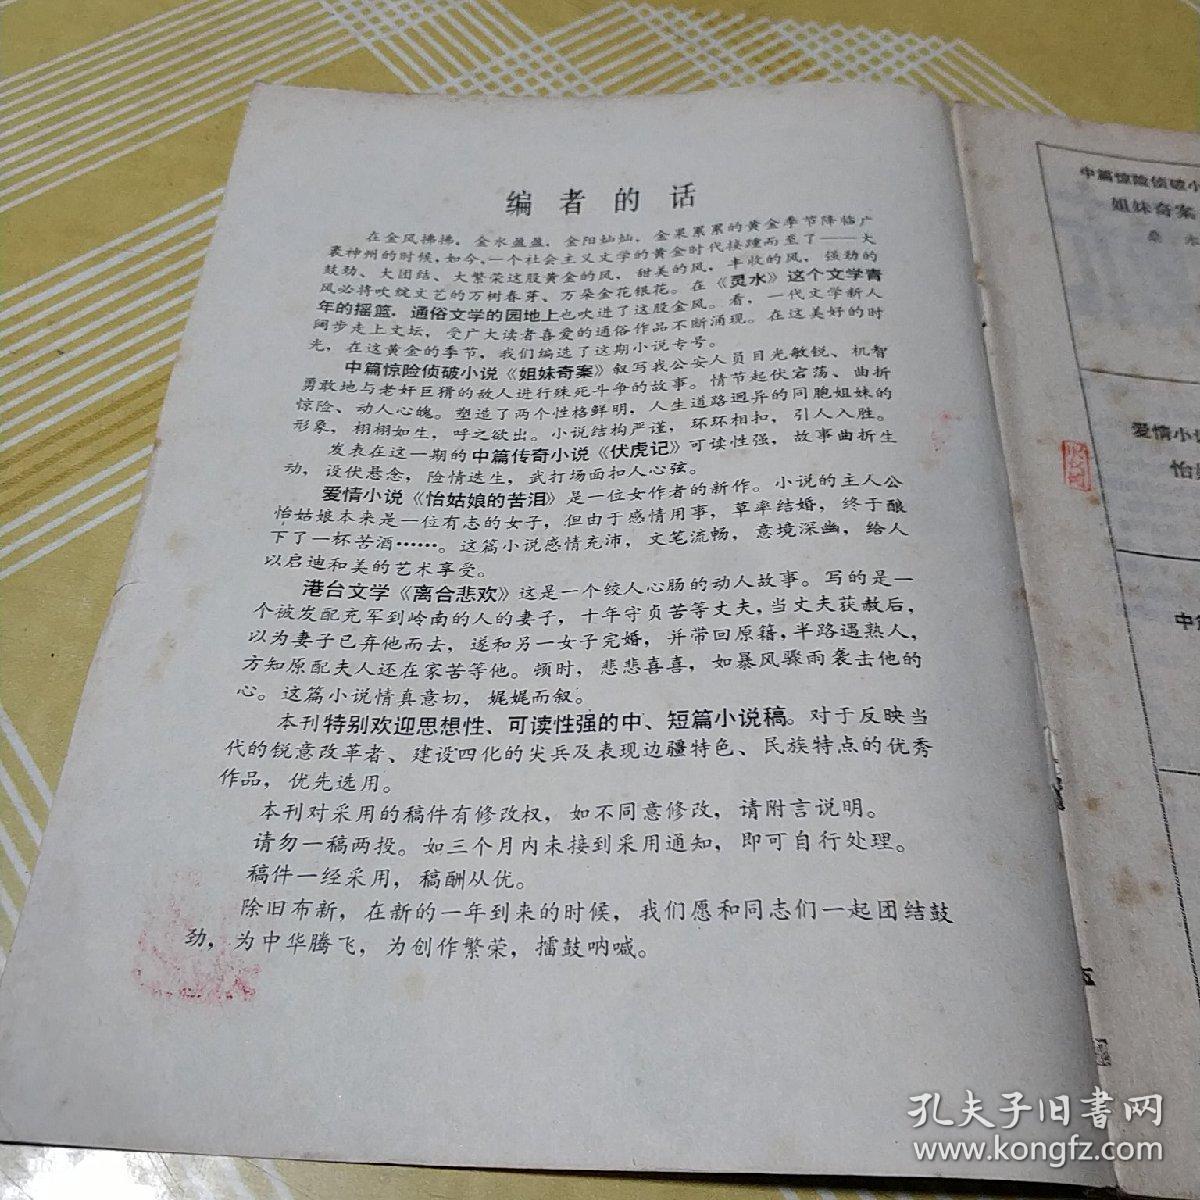 编者的话
在金风拂拂，金水盈盈，金阳灿灿，金果累累的黄金季节降临广
袤神州的时候，如今，一个社会主义文学的黄金时代接踵而至了——大
鼓劲、大团结、大繁荣这股黄金的风，甜美的风，丰收的风，强劲的
风必将吹绽文艺的万树春芽、万朵金花银花。在《灵水》这个文学青
年的摇篮，通俗文学的园地上也吹进了这股金风。看，一代文学新人
阔步走上文坛，受广大读者喜爱的通俗作品不断涌现。在这美好的时
光，在这黄金的季节，我们编选了这期小说专号。
中篇惊险侦破小说《姐妹奇案》叙写我公安人员目光敏锐、机智
勇敢地与老奸巨猾的敌人进行殊死斗争的故事。情节起伏宕荡、曲折
惊险、动人心魄。塑造了两个性格鲜明，人生道路迥异的同胞姐妹的
形象，栩栩如生，呼之欲出。小说结构严谨，环环相扣，引人入胜。
发表在这一期的中篇传奇小说《伏虎记》可读性强，故事曲折生
动，设伏悬念，险情迭生，武打场面扣人心弦。
爱情小说《怡姑娘的苦泪》是一位女作者的新作。小说的主人公
怡姑娘本来是一位有志的女子，但由于感情用事，草率结婚，终于酿
下了一杯苦酒……。这篇小说感情充沛，文笔流畅，意境深幽，给人
以启迪和美的艺术享受。
港台文学《离合悲欢》这是一个绞人心肠的动人故事。写的是一
个被发配充军到岭南的人的妻子，十年守贞苦等丈夫，当丈夫获赦后，
以为妻子已弃他而去，遂和另一女子完婚，并带回原籍，半路遇熟人，
方知原配夫人还在家苦等他。顿时，悲悲喜喜，如暴风骤雨袭击他的
心。这篇小说情真意切，娓娓而叙。
本刊特别欢迎思想性、可读性强的中、短篇小说稿。对于反映当
代的锐意改革者、建设四化的尖兵及表现边疆特色、民族特点的优秀
作品，优先选用。
本刊对采用的稿件有修改权，如不同意修改，请附言说明。
请勿一稿两投。如三个月内未接到采用通知，即可自行处理。
稿件一经采用，稿酬从优。
除旧布新，在新的一年到来的时候，我们愿和同志们一起团结鼓
劲，为中华腾飞，为创作繁荣，擂鼓呐喊。
中篇惊险侦破小
姐妹奇案
爱情小
怡
中
孔夫子旧书网
www.kongfz.com